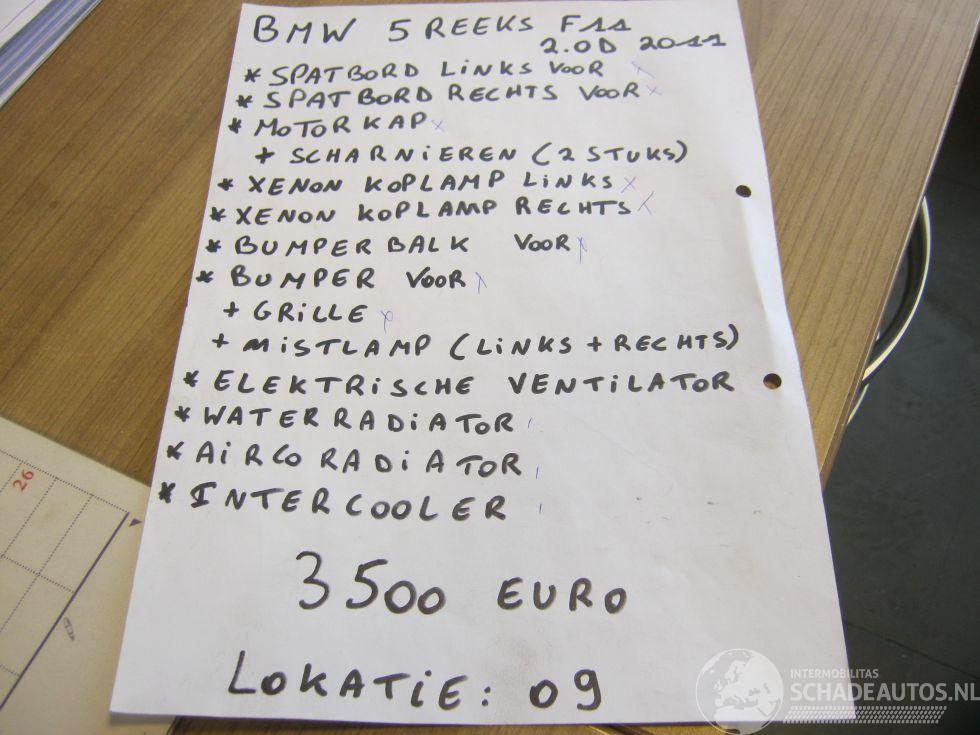 BMW 5 REEKS F11
2.0D 2011
* SPATBORD LINKS VOOR x
* SPATBORD RECHTS VOOR x
* MOTORKAP x
+ SCHARNIEREN (2 STUKS)
* XENON KOPLAMP LINKS x
* XENON KOPLAMP RECHTS x
* BUMPERBALK VOOR x
* BUMPER VOOR x
+ GRILLE x
+ MISTLAMP (LINKS + RECHTS)
* ELEKTRISCHE VENTILATOR
* WATERRADIATOR
* AIRCO RADIATOR
* INTERCOOLER
3500 EURO
LOKATIE: 09
26
INTERMOBILITAS
SCHADEAUTOS.NL